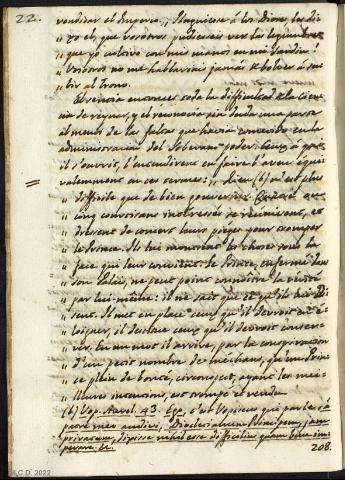 22.
vendiser el Imperio. ,, Pluguiese à los Dioses, les di-
,, xo el, que vosotros pudieseis ver las legumbres
,, que yo cultivo con mis manos en mi Jardin!
,, Vosotros no me hablariais jamás de bolver à su-
,, bir al Trono.
El sencia entonces toda la dificultad de la Cien-
cia de reynar, y el reconocio sin duda una parte
al menos de las faltas que havia cometido en la
administracion del Soberano poder.
,, Rien (b) n'est plus
,, difficile que de bien gouverner. Quatre ou
,, cinq courtisans interessés se réunissent, et
,, dressent de concert leurs piéges pour tromper
,, le Prince. Ils lui montrent les choses sous la
,, face qui leur convient. Le Prince, enfermé dans
,, son Palais, ne peut point connoître la vérité
,, par lui-même: il ne sait que ce qu'ils lui di-
,, sent. Il met en place ceux qu'il devroit é-
,, loigner, il déplace ceux qu'il devroit conser-
,, ver. En un mot il arrive, par la conspiration
,, d'un petit nombre de méchans, qu'un Prin-
,, ce plein de bonté, circonspect, ayant les mei-
,, lleures intentions, est trompé et vendu.
(b) Vop. Aurel. 43. Ego, c'est Vopiscus qui parle, à
patre meo audivi, Diocletianum Principem, jam
privatum, dixisse nihil esse difficilius quam bene im-
perare. &c.
208.
A.C.D. 2022